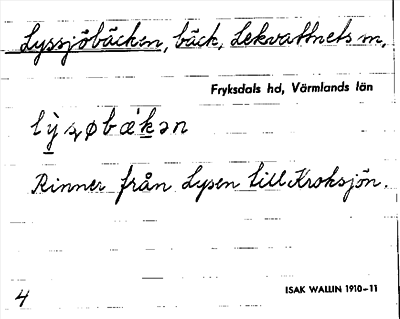 Lyssjöbäcken, bäck, Lekvattnets m.
Fryksdals hd, Värmlands län
Rinner från Lysen till Kroksjön.
4
ISAK WALLIN 1910–11